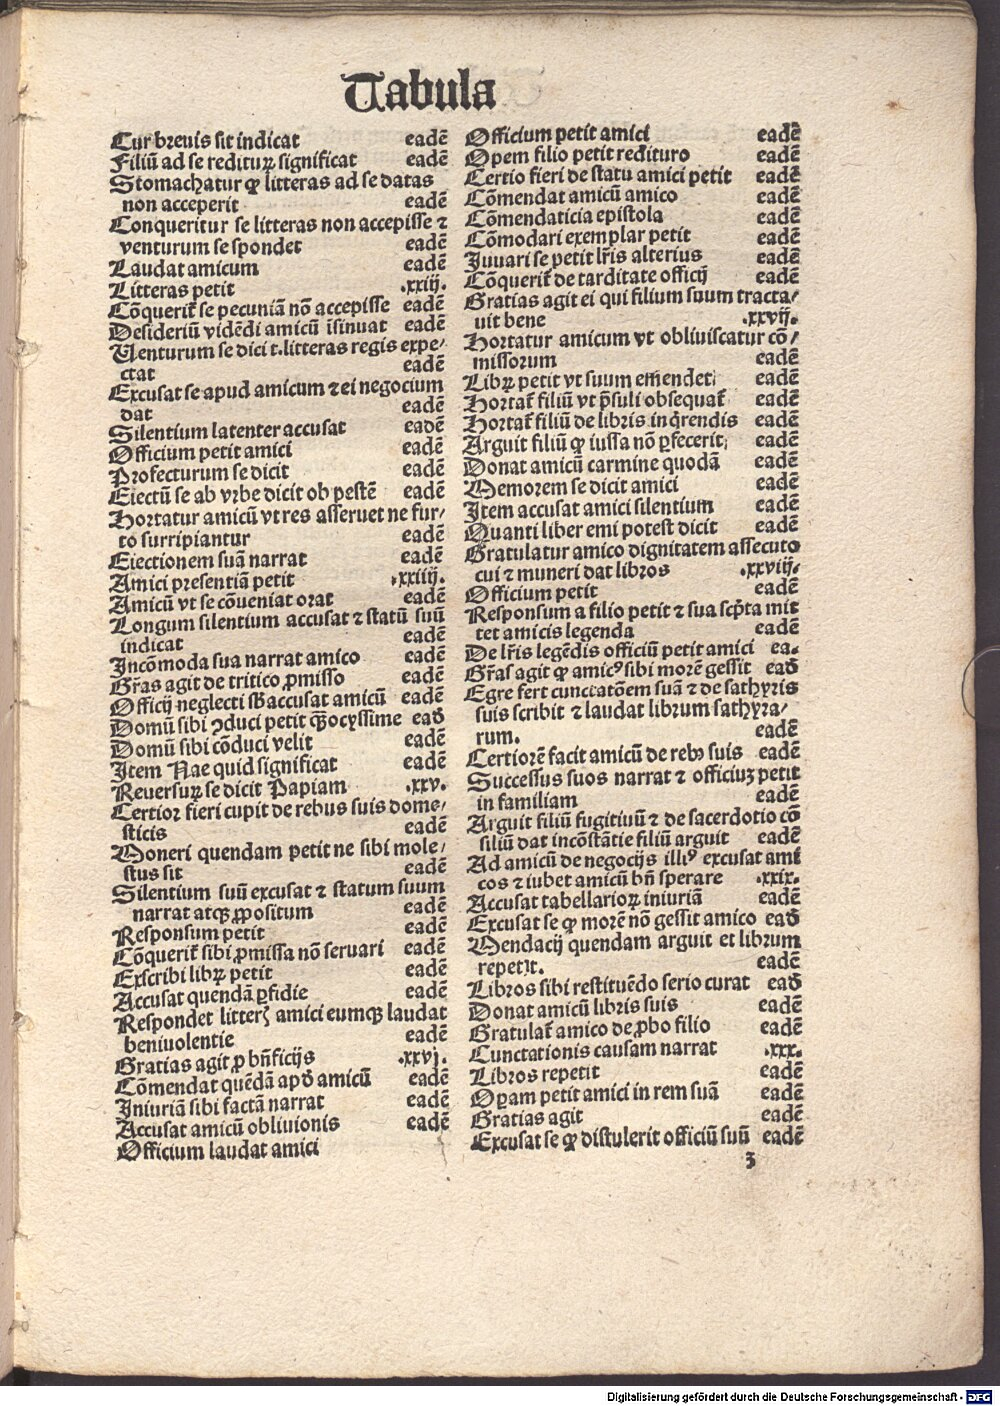 Tabula
Cur breuis sit indicat eadē
Filiū ad se rediturꝝ significat eadē
Stomachatur ꝙ litteras ad se datas
non acceperit eadē
Conqueritur se litteras non accepisse ⁊
venturum se spondet eadē
Laudat amicum eadē
Litteras petit .xxiij.
Cōquerit̃ se pecuniā nō accepisse eadē
Desideriū vidēdi amicū īsinuat eadē
Uenturum se dici t.litteras regis expe⸗
ctat eadē
Excusat se apud amicum ⁊ ei negocium
dat eadē
Silentium latenter accusat eadē
Officium petit amici eadē
Profecturum se dicit eadē
Eiectū se ab vrbe dicit ob pestē eadē
Hortatur amicū vt res asseruet ne fur⸗
to surripiantur eadē
Eiectionem suā narrat eadē
Amici presentiā petit .xxiiij.
Amicū vt se cōueniat orat eadē
Longum silentium accusat ⁊ statū suū
indicat eadē
Incōmoda sua narrat amico eadē
Gr̃as agit de tritico ꝓmisso eadē
Officij neglecti sb̄accusat amicū eadē
Domū sibi ꝯduci petit qȝ̄ocyssime eað
Domū sibi cōduci velit eadē
Item Nae quid significat eadē
Reuersuꝝ se dicit Papiam .xxv.
Certior fieri cupit de rebus suis dome⸗
sticis eadē
Moneri quendam petit ne sibi mole⸗
stus sit eadē
Silentium suū excusat ⁊ statum suum
narrat atqȝ ꝓpositum eadē
Responsum petit eadē
Cōquerit̃ sibi ꝓmissa nō seruari eadē
Exscribi librꝝ petit eadē
Accusat quendā ꝑfidie eadē
Respondet litterꝭ amici eumqȝ laudat
beniuolentie eadē
Gratias agit ꝓ bn̄ficijs .xxvj.
Cōmendat quēdā apð amicū eadē
Iniuriā sibi factā narrat eadē
Accusat amicū obliuionis eadē
Officium laudat amici
Officium petit amici eadē
Opem filio petit redituro eadē
Certio fieri de statu amici petit eadē
Cōmendat amicū amico eadē
Cōmendaticia epistola eadē
Cōmodari exemplar petit eadē
Juuari se petit lr̃is alterius eadē
Cōquerit̃ de tarditate officij eadē
Gratias agit ei qui filium suum tracta⸗
uit bene .xxvij.
Hortatur amicum vt obliuiscatur cō⸗
missorum eadē
Librꝝ petit vt suum emēdet eadē
Hortat̃ filiū vt p̄suli obsequat̃ eadē
Hortat̃ filiū de libris inq̄rendis eadē
Arguit filiū ꝙ iussa nō ꝑfecerit eadē
Donat amicū carmine quodā eadē
Memorem se dicit amici eadē
Item accusat amici silentium eadē
Quanti liber emi potest dicit eadē
Gratulatur amico dignitatem assecuto
cui ⁊ muneri dat libros .xxviij.
Officium petit eadē
Responsum a filio petit ⁊ sua scp̄ta mit
tet amicis legenda eadē
De lr̃is legēdis officiū petit amici ea.
Gr̃as agit ꝙ amicꝰ sibi morē gessit eað
Egre fert cunctatōem suā ⁊ de sathyris
suis scribit ⁊ laudat librum sathyra⸗
rum. eadē
Certiorē facit amicū de rebꝰ suis eadē
Successus suos narrat ⁊ officiuȝ petit
in familiam eadē
Arguit filiū fugitiuū ⁊ de sacerdotio cō
siliū dat incōstātie filiū arguit eadē
Ad amicū de negocijs illiꝰ excusat ami
cos ⁊ iubet amicū bn̄ sperare .xxix.
Accusat tabellarioꝝ iniuriā eadē
Excusat se ꝙ morē nō gessit amico eað
Mendacij quendam arguit et librum
repetit. eadē
Libros sibi restituēdo serio curat eað
Donat amicū libris suis eadē
Gratulat̃ amico de ꝓbo filio eadē
Cunctationis causam narrat .xxx.
Libros repetit eadē
Opam petit amici in rem suā eadē
Gratias agit eadē
Excusat se ꝙ distulerit officiū suū eadē
3
Digitalisierung gefördert durch die Deutsche Forschungsgemeinschaft - DFG